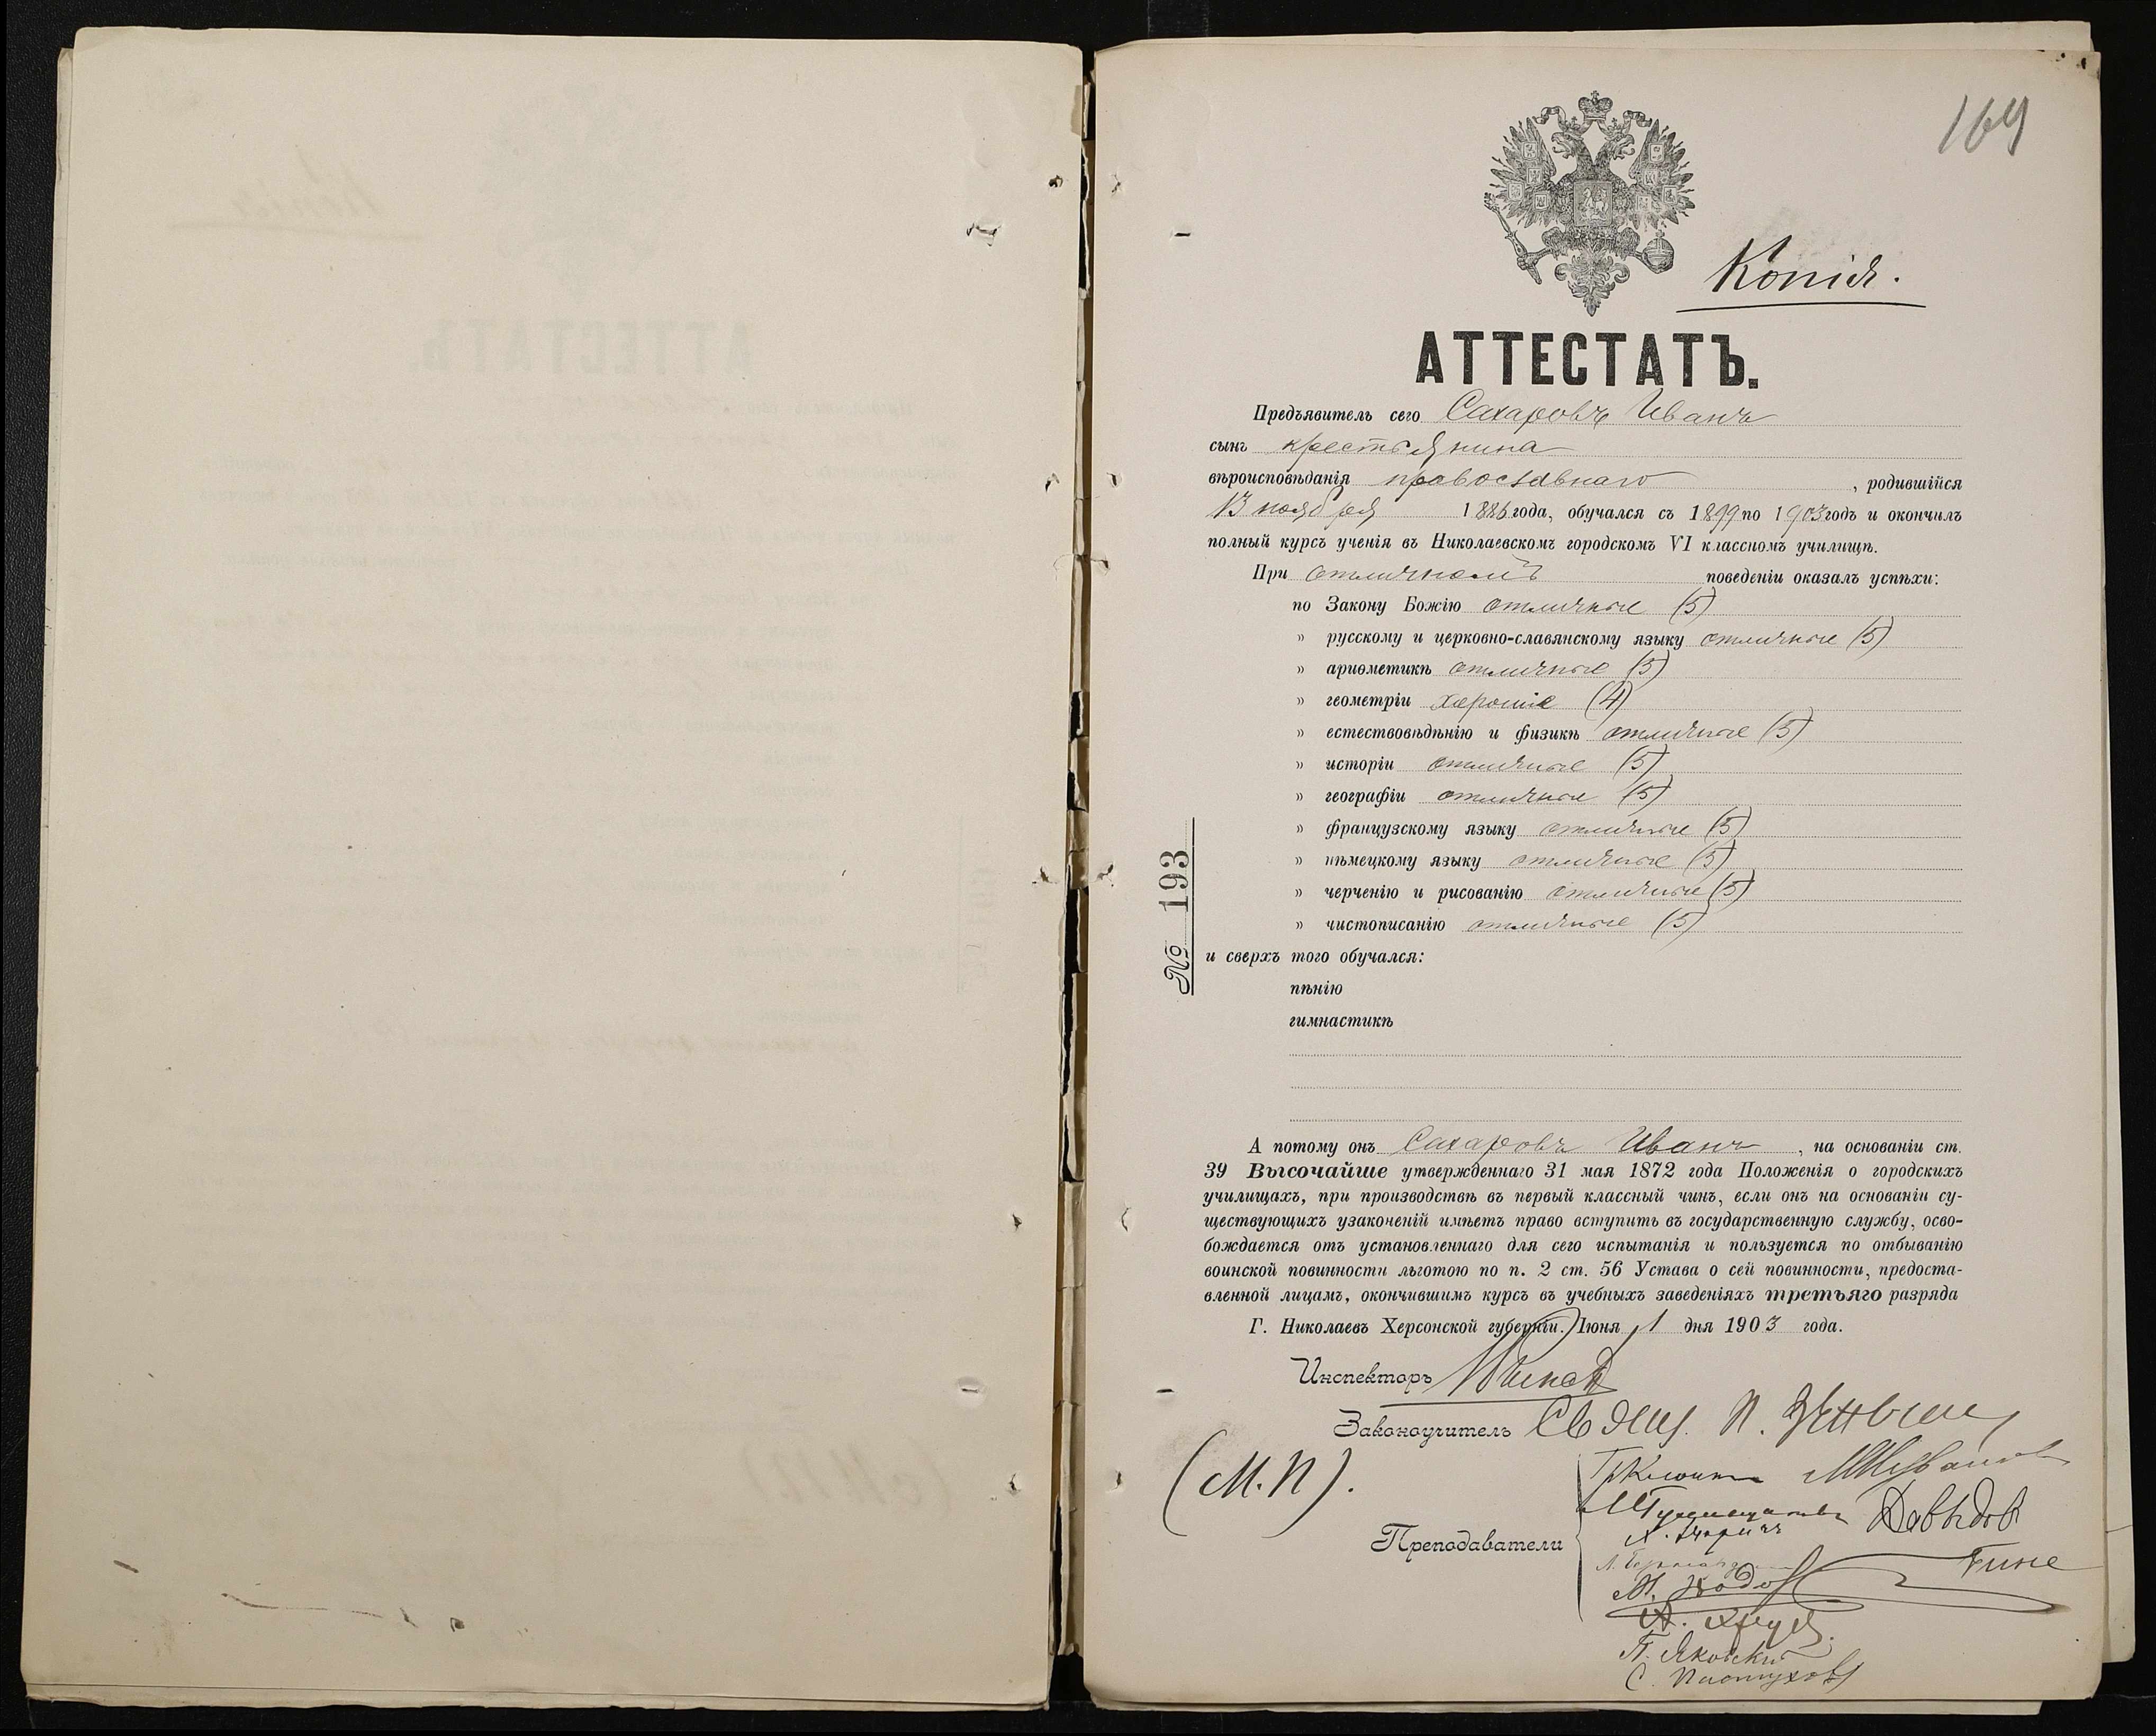 169
Копія.
АТТЕСТАТЪ.
Предъявитель сего Сахаровъ Иванъ
сынъ крестьянина
вѣроисповѣданія православнаго , родившійся
13 ноября 1886 года, обучался съ 1899 по 1903 годъ и окончилъ
полный курсъ ученія въ Николаевскомъ городскомъ VI классномъ училищѣ.
При отличномъ поведеніи оказалъ успѣхи:
по Закону Божію отличные (5)
» русскому и церковно-славянскому языку отличные (5)
» ариѳметикѣ отличные (5)
» геометріи хорошіе (4)
» естествовѣдѣнію и физикѣ отличные (5)
» исторіи отличные (5)
» географіи отличные (5)
» французскому языку отличные (5)
» нѣмецкому языку отличные (5)
» черченію и рисованію отличные (5)
» чистописанію отличные (5)
№ 193
и сверхъ того обучался:
пѣнію
гимнастикѣ
А потому онъ Сахаровъ Иванъ , на основаніи ст.
39 Высочайше утвержденнаго 31 мая 1872 года Положенія о городскихъ
училищахъ, при производствѣ въ первый классный чинъ, если онъ на основаніи су-
ществующихъ узаконеній имѣетъ право вступить въ государственную службу, осво-
бождается отъ установленнаго для сего испытанія и пользуется по отбыванію
воинской повинности льготою по п. 2 ст. 56 Устава о сей повинности, предоста-
вленной лицамъ, окончившимъ курсъ въ учебныхъ заведеніяхъ третьяго разряда
Г. Николаевъ Херсонской губерніи. Іюня 1 дня 1903 года.
Инспекторъ
Законоучитель Свящ. П.
(М.П).
Преподаватели
Давыдов
Гине
М.
А.
П. Яковскій
С. Пастуховъ